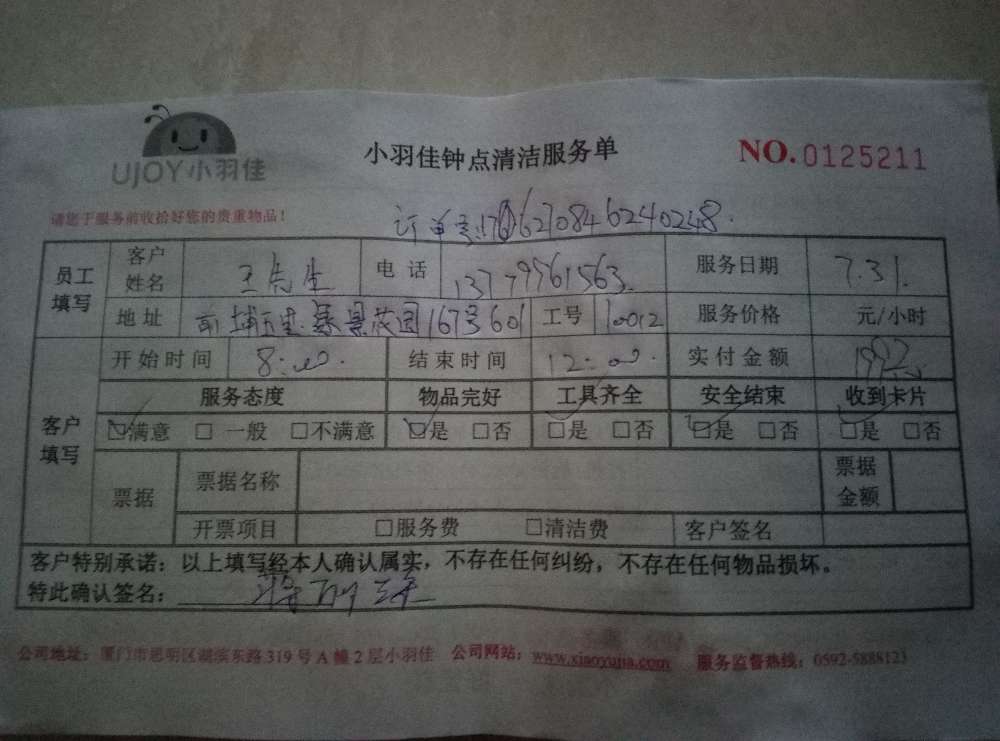 UJOY小羽佳
小羽佳钟点清洁服务单
NO.0125211
请您于服务前收拾好您的贵重物品！
订单号:
员工填写 客户姓名 王先生 电话 13779561563 服务日期 7.31.
地址 前埔五里 景园 167号601 工号 10012 服务价格 元/小时
客户填写 开始时间 8:00 结束时间 12:00 实付金额
服务态度 物品完好 工具齐全 安全结束 收到卡片
☑满意 □一般 □不满意 ☑是 □否 □是 □否 ☑是 □否 ☑是 □否
票据 票据名称 票据金额
开票项目 □服务费 □清洁费 客户签名
客户特别承诺：以上填写经本人确认属实，不存在任何纠纷，不存在任何物品损坏。
特此确认签名：
公司地址：厦门市思明区湖滨东路319号A幢2层小羽佳 公司网站：www.xiaoyujia.com 服务监督热线：0592-5888123